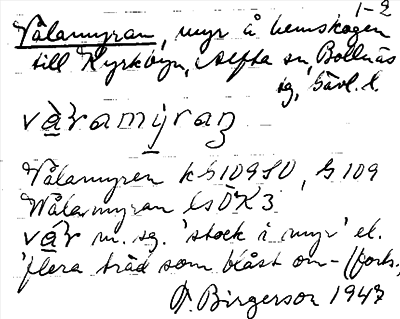 1-2
Vålamyran, myr å hemskogen
till Kyrkbyn, Alfta sn, Bollnäs
sg, Gävl. l.
våramýraʒ
Vålamyren kG109SO, G 109
Wålarmyran LSÖK3
vår m. sg. 'stock i myr' el.
'flera träd som blåst om- (forts.)
Birgerson 1947